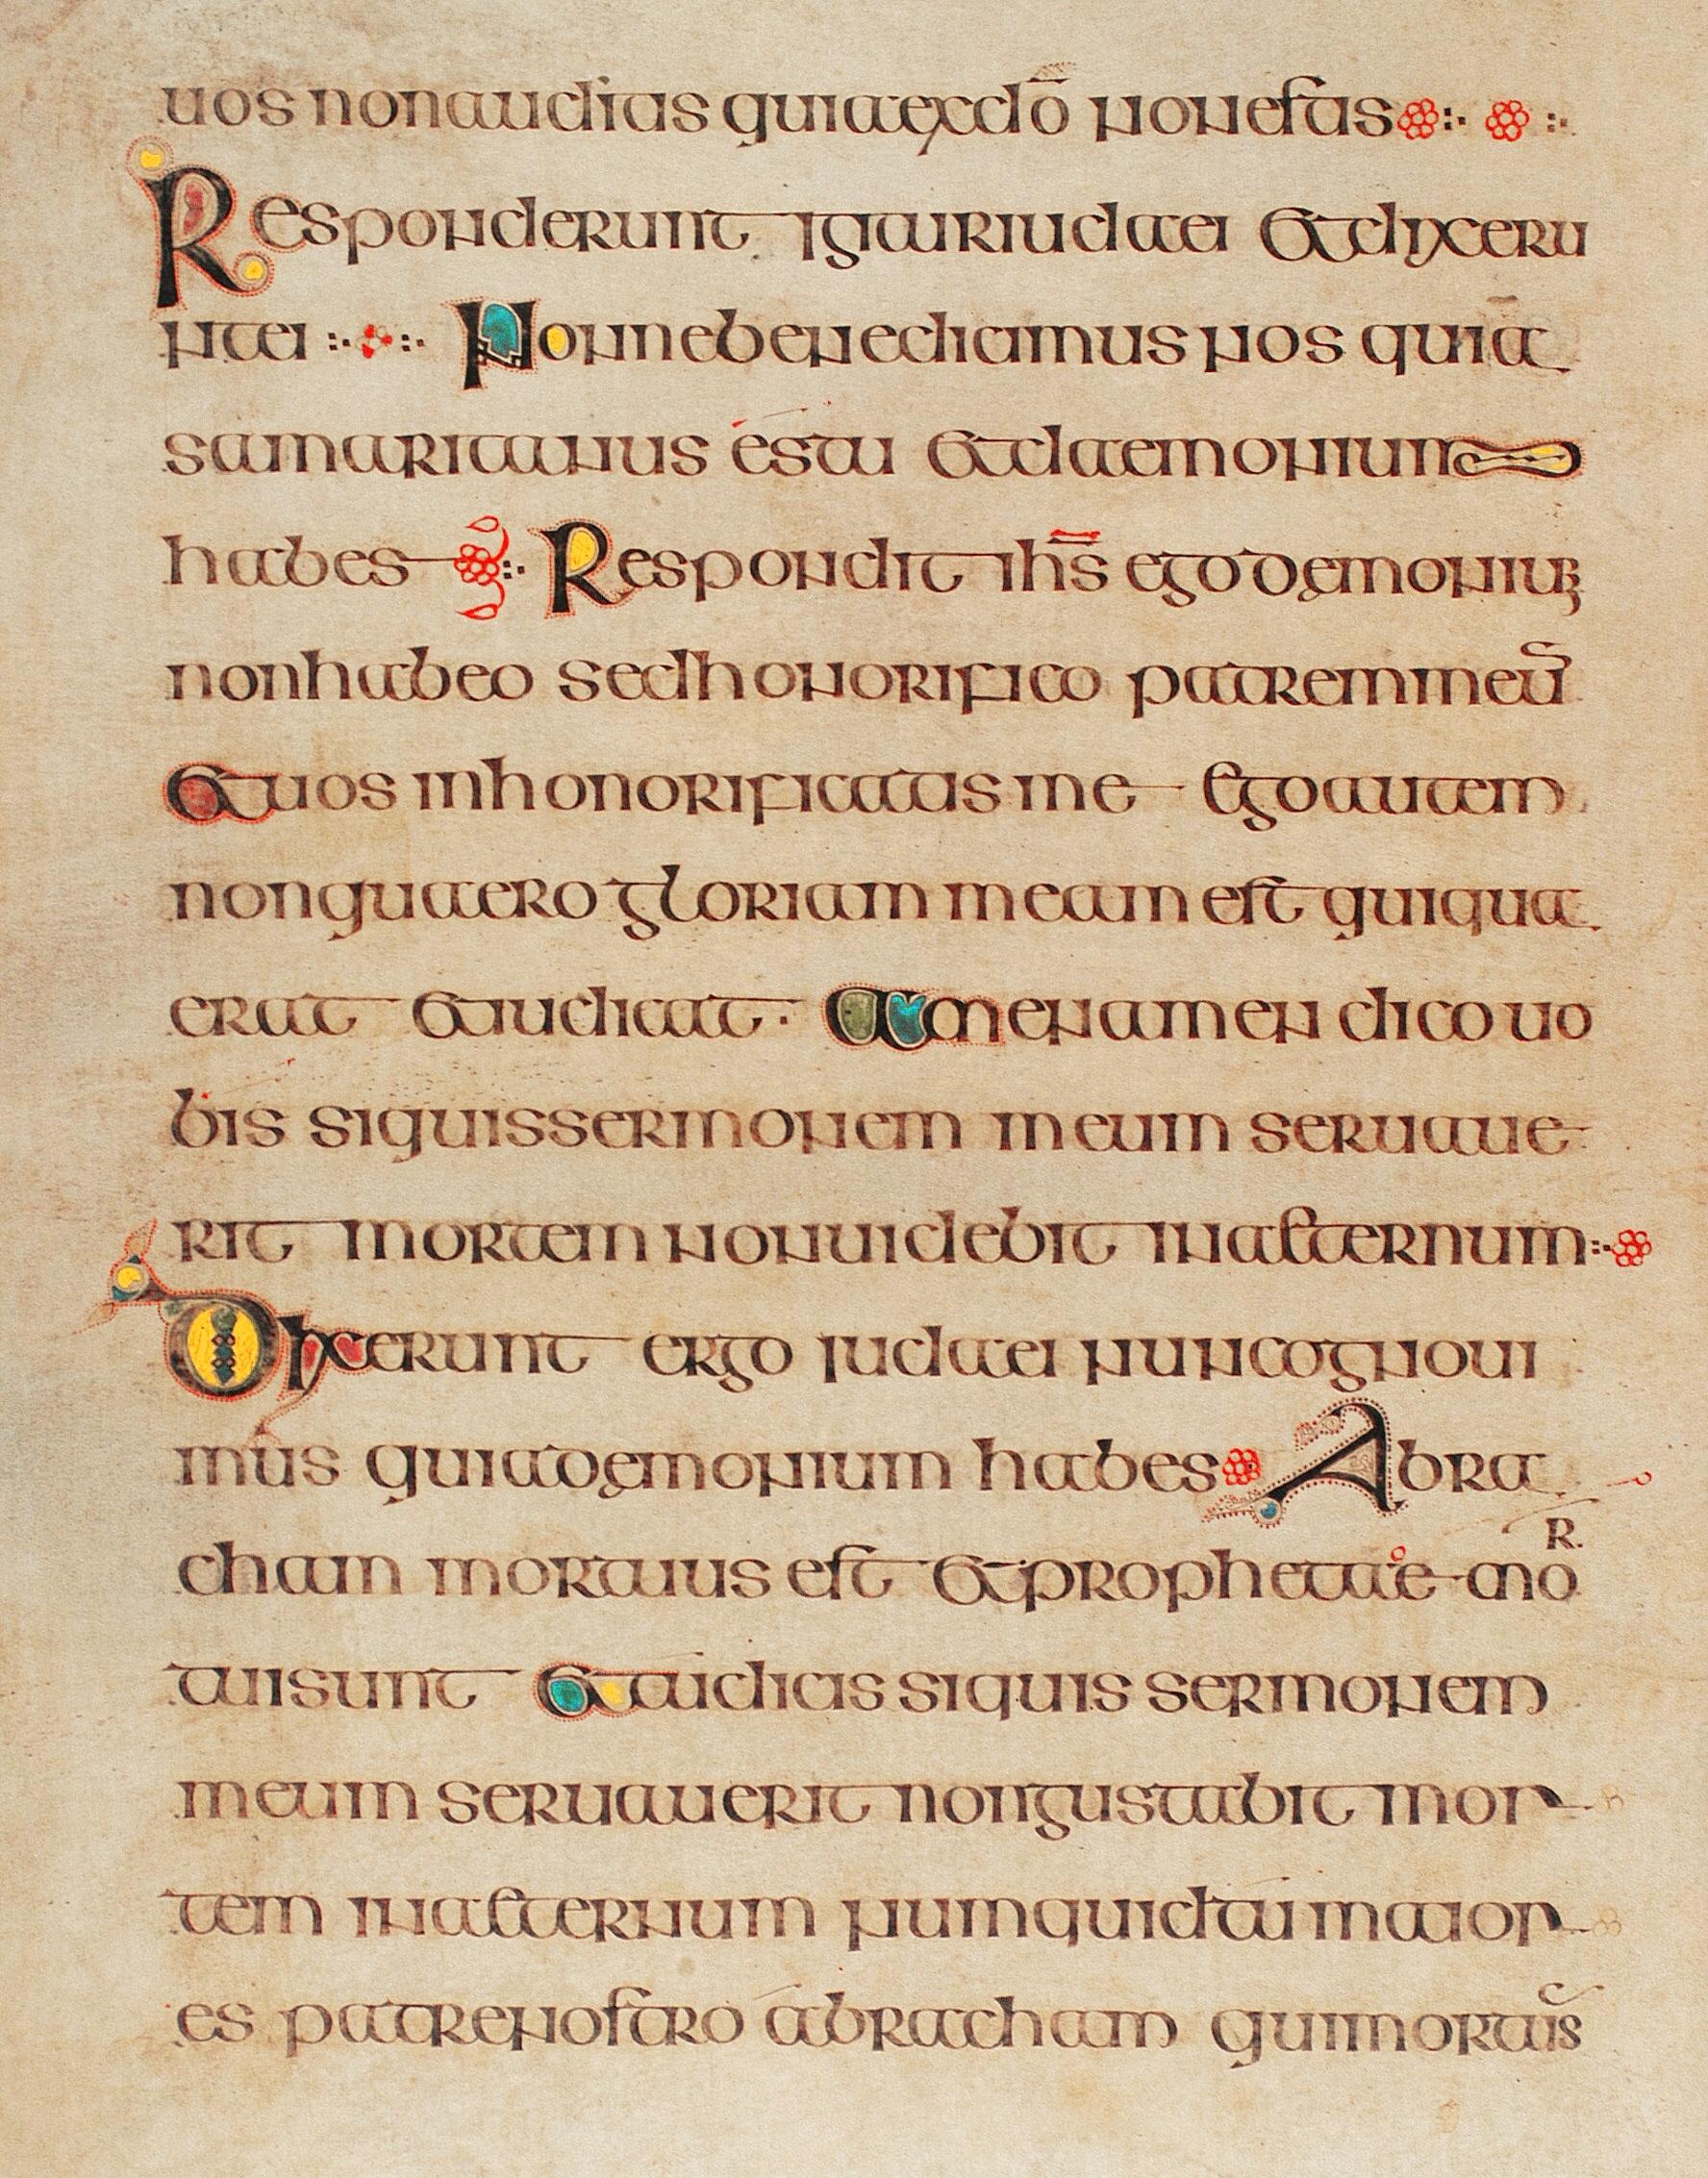 uos non auditis quia ex dō non estis
Responderunt igitur iudaei et dixeru
nt ei Nonne benedicimus nos quia
samaritanus es tu et daemonium
habes Respondit ihs̄ ego demoniuꝫ
non habeo sed honorifico patrem meū
Et uos inhonorificatis me Ego autem
non quaero gloriam meam est qui qua
erat et iudicat · Amen amen dico uo
bis si quis sermonem meum seruaue
rit mortem non uidebit in aeternum
Dixerunt ergo iudaei nuncognoui
mus quia demonium habes Abra
cham mortuus est et prophetae mo
R.
tui sunt Et tu dicis si quis sermonem
meum seruauerit non gustabit mor
tem in aeternum numquid tu maior
es patre nostro abracham qui mortūs